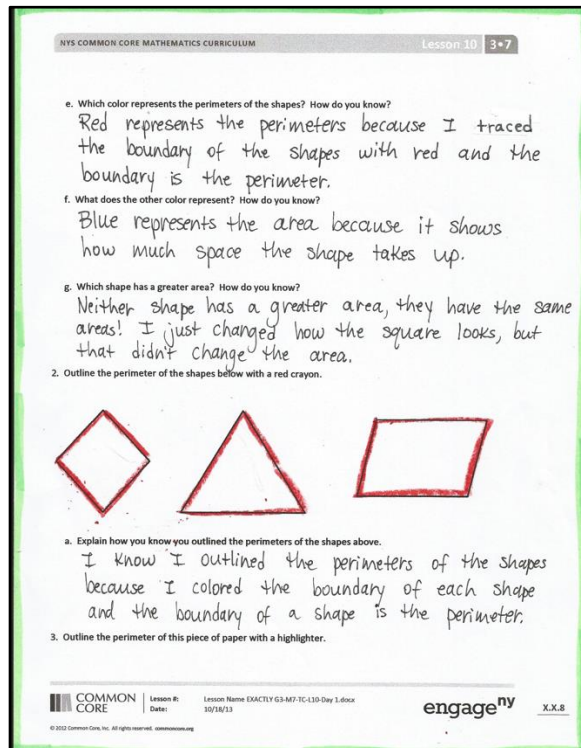 NYS COMMON CORE MATHEMATICS CURRICULUM
Lesson 10
3•7
e. Which color represents the perimeters of the shapes? How do you know?
Red represents the perimeters because I traced
the boundary of the shapes with red and the
boundary is the perimeter.
f. What does the other color represent? How do you know?
Blue represents the area because it shows
how much space the shape takes up.
g. Which shape has a greater area? How do you know?
Neither shape has a greater area, they have the same
areas! I just changed how the square looks, but
that didn't change the area.
2. Outline the perimeter of the shapes below with a red crayon.
a. Explain how you know you outlined the perimeters of the shapes above.
I know I outlined the perimeters of the shapes
because I colored the boundary of each shape
and the boundary of a shape is the perimeter.
3. Outline the perimeter of this piece of paper with a highlighter.
COMMON
CORE
Lesson #:
Lesson Name EXACTLY G3-M7-TC-L10-Day 1.docx
Date:
10/18/13
engageny
X.X.8
© 2012 Common Core, Inc. All rights reserved. commoncore.org